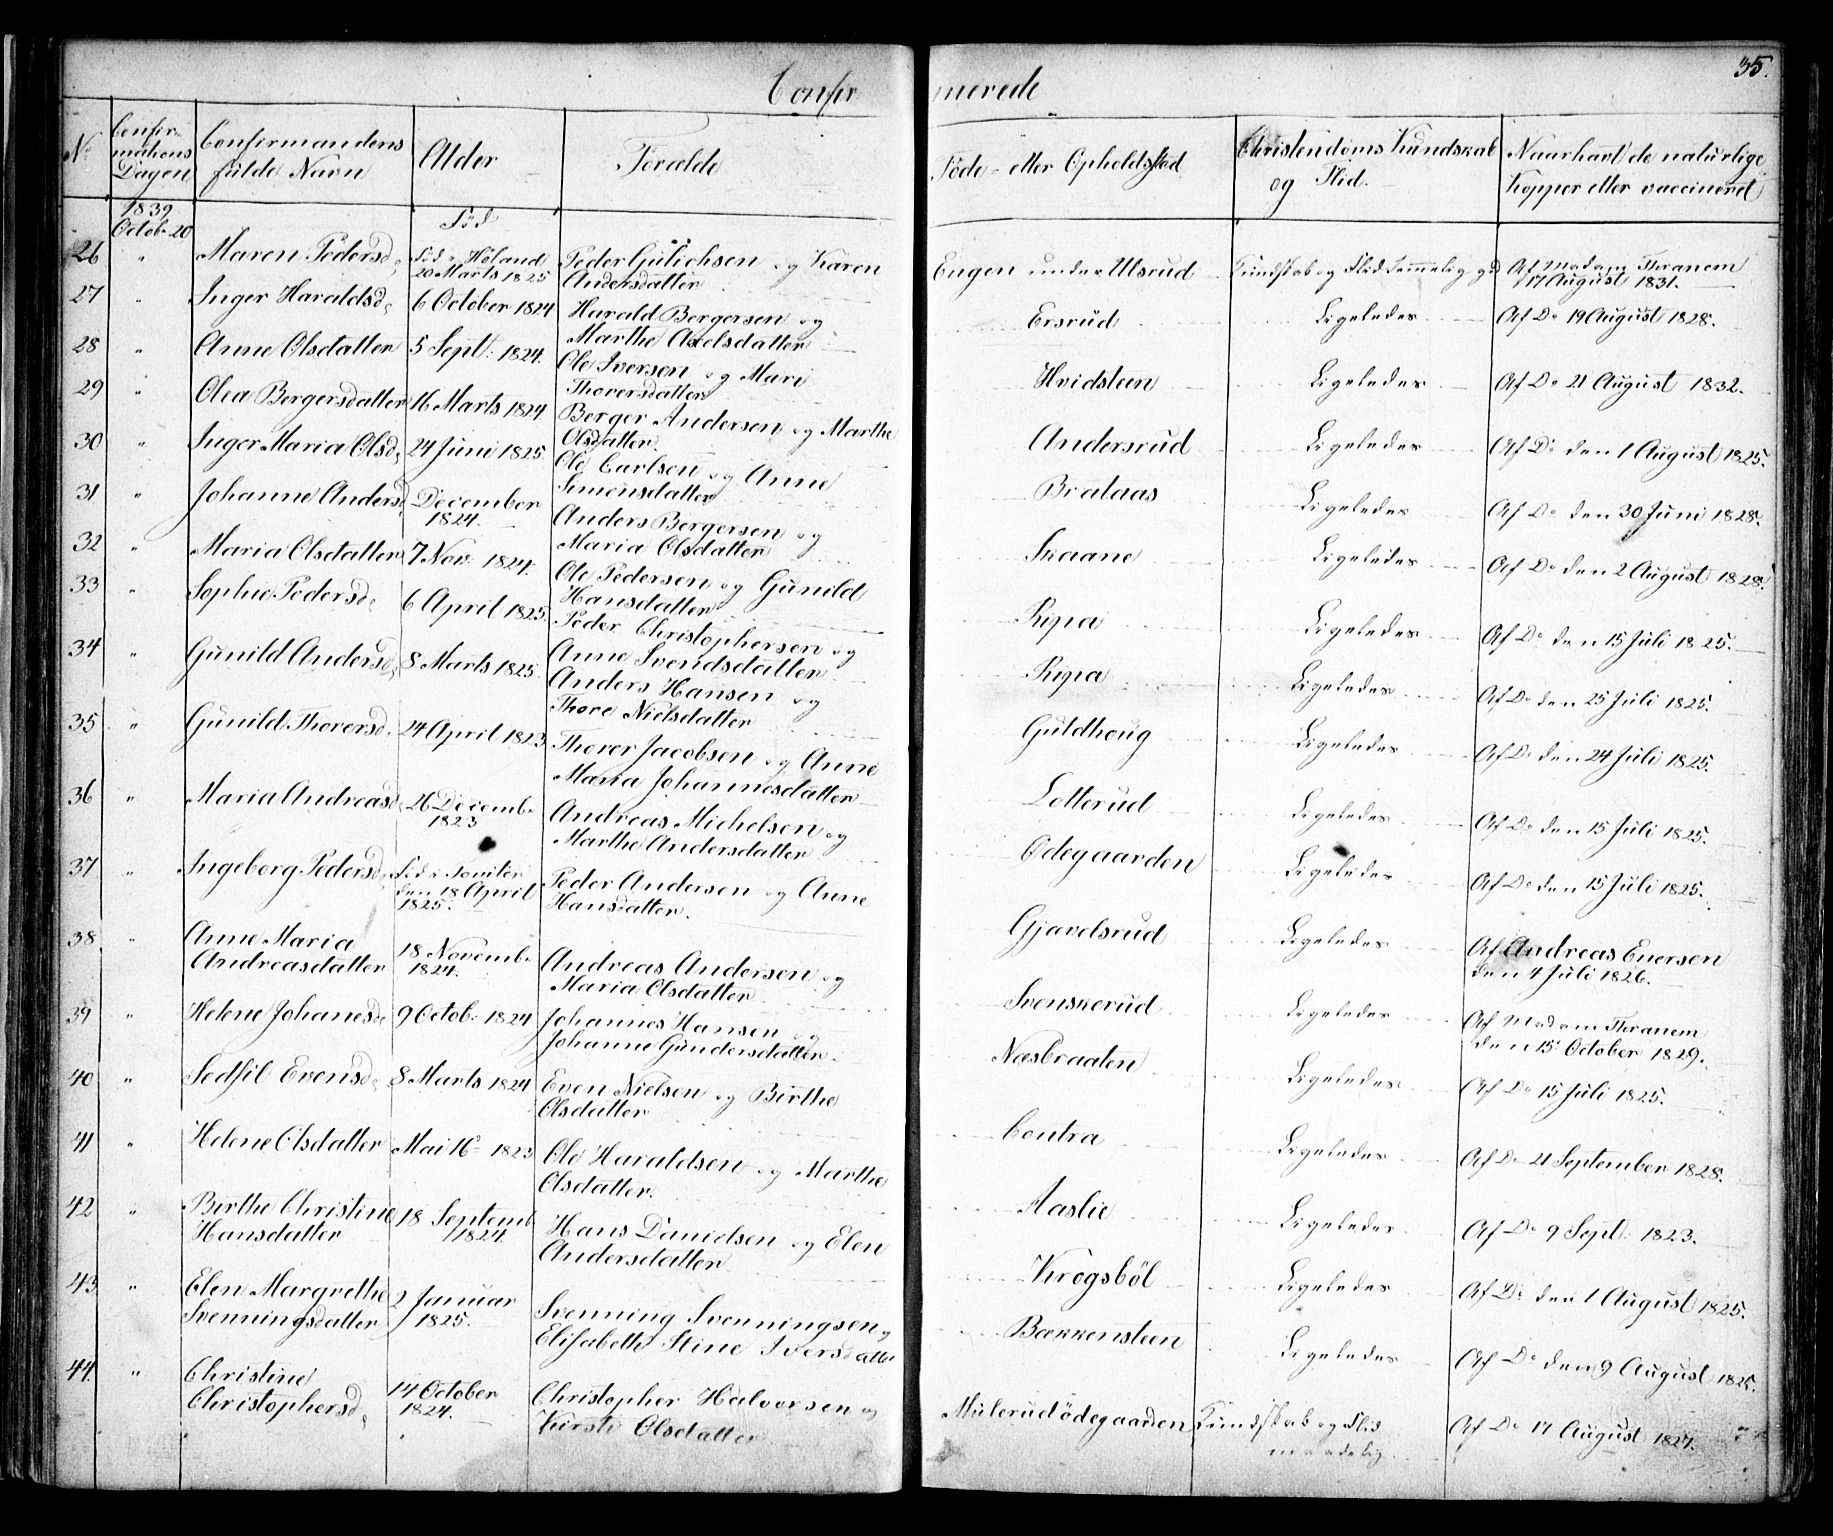 35.
Confirmerede
No Confirmations Dagen Confirmandens fulde Navn Alder Forældre Föde- eller Opholdsstad Christendoms Kundskab og Flid. Naar havt de naturlige Kopper eller vaccineret
1839 Octob. 20 Föd
26 " Maren Pedersd. Föd i Höland 20 Marts 1825 Peder Gulichsen og Karen Andersdatter Engen under Ulsrud Kundskab og Flid temmelig gd Af Madam Thranem 17 August 1831.
27 " Inger Haraldsd. 6 October 1824 Harald Bergersen og Marthe Axelsdatter Ersrud Ligeledes Af Do 19 August 1828.
28 " Anne Olsdatter 5 Sept. 1824. Ole Iversen og Mari Thorersdatter Hvidsteen Ligeledes Af Do 21 August 1832.
29 " Olea Bergersdatter 16 Marts 1824 Berger Andersen og Marthe Olsdatter. Andersrud Ligeledes Af Do den 1 August 1825.
30 " Inger Maria Olsd. 24 Juni 1825. Ole Carlsen og Anne Simensdatter Brataas Ligeledes Af Do den 30 Juni 1828.
31 " Johanne Andersd. December 1824. Anders Bergersen og Maria Olsdatter Skaane Ligeledes Af Do den 2 August 1828.
32 " Maria Olsdatter 7 Nov. 1824. Ole Pedersen og Gunild Hansdatter Ripa Ligeledes Af Do den 15 Juli 1825.
33 " Sophie Pedersd. 6 April 1825. Peder Christophersen og Anne Svendsdatter Ripa Ligeledes Af Do den 25 Juli 1825.
34 " Gunild Andersd. 8 Marts 1825. Anders Hansen og Thore Nielsdatter Guldhoug Ligeledes Af Do den 24 Juli 1825.
35 " Gunild Thorersd. 24 April 1823 Thorer Jacobsen og Anne Maria Johannesdatter Lotterud Ligeledes Af Do den 15 Juli 1825.
36 " Maria Andreasd. 26 Decemb. 1823 Andreas Michelsen og Marthe Andersdatter Ödegaarden Ligeledes Af Do den 15 Juli 1825.
37 " Ingeborg Pedersd. Föd i den 18 April 1825. Peder Andersen og Anne Hansdatter. Gjavelsrud Ligeledes Af Andreas Enersen den 4 Juli 1826.
38 " Anne Maria Andreasdatter 18 Novemb. 1824. Andreas Andersen og Maria Olsdatter Svenskerud Ligeledes Af Madam Thranem den 15 October 1829.
39 " Helene Johanesd. 9 Octob. 1824 Johannes Hansen og Johanne Gundersdatter Næsbraaten Ligeledes Af Do 15 Juli 1825.
40 " Sedsil Evensd. 8 Marts 1824 Even Nielsen og Birthe Olsdatter Contra Ligeledes Af Do 21 September 1828.
41 " Helene Olsdatter Mai 16 1823 Ole Haraldsen og Marthe Olsdatter. Aaslie Ligeledes Af Do 9 Sept. 1823.
42 " Birthe Christine Hansdatter 18 Septemb 1824. Hans Danielsen og Elen Andersdatter Krogsböl Ligeledes Af Do den 1 August 1825.
43 " Elen Margrethe Svenningsdatter 2 Januar 1825. Svenning Svenningsen og Elisabeth Stine Iversdatter Bækkensteen Ligeledes Af Do den 9 August 1825.
44. " Christine Christophersd. 14 October 1824. Christopher Halvorsen og Kirsti Olsdatter Mulerudödegaarden Kundskab og Flid maadelig Af Do 17 August 1827.